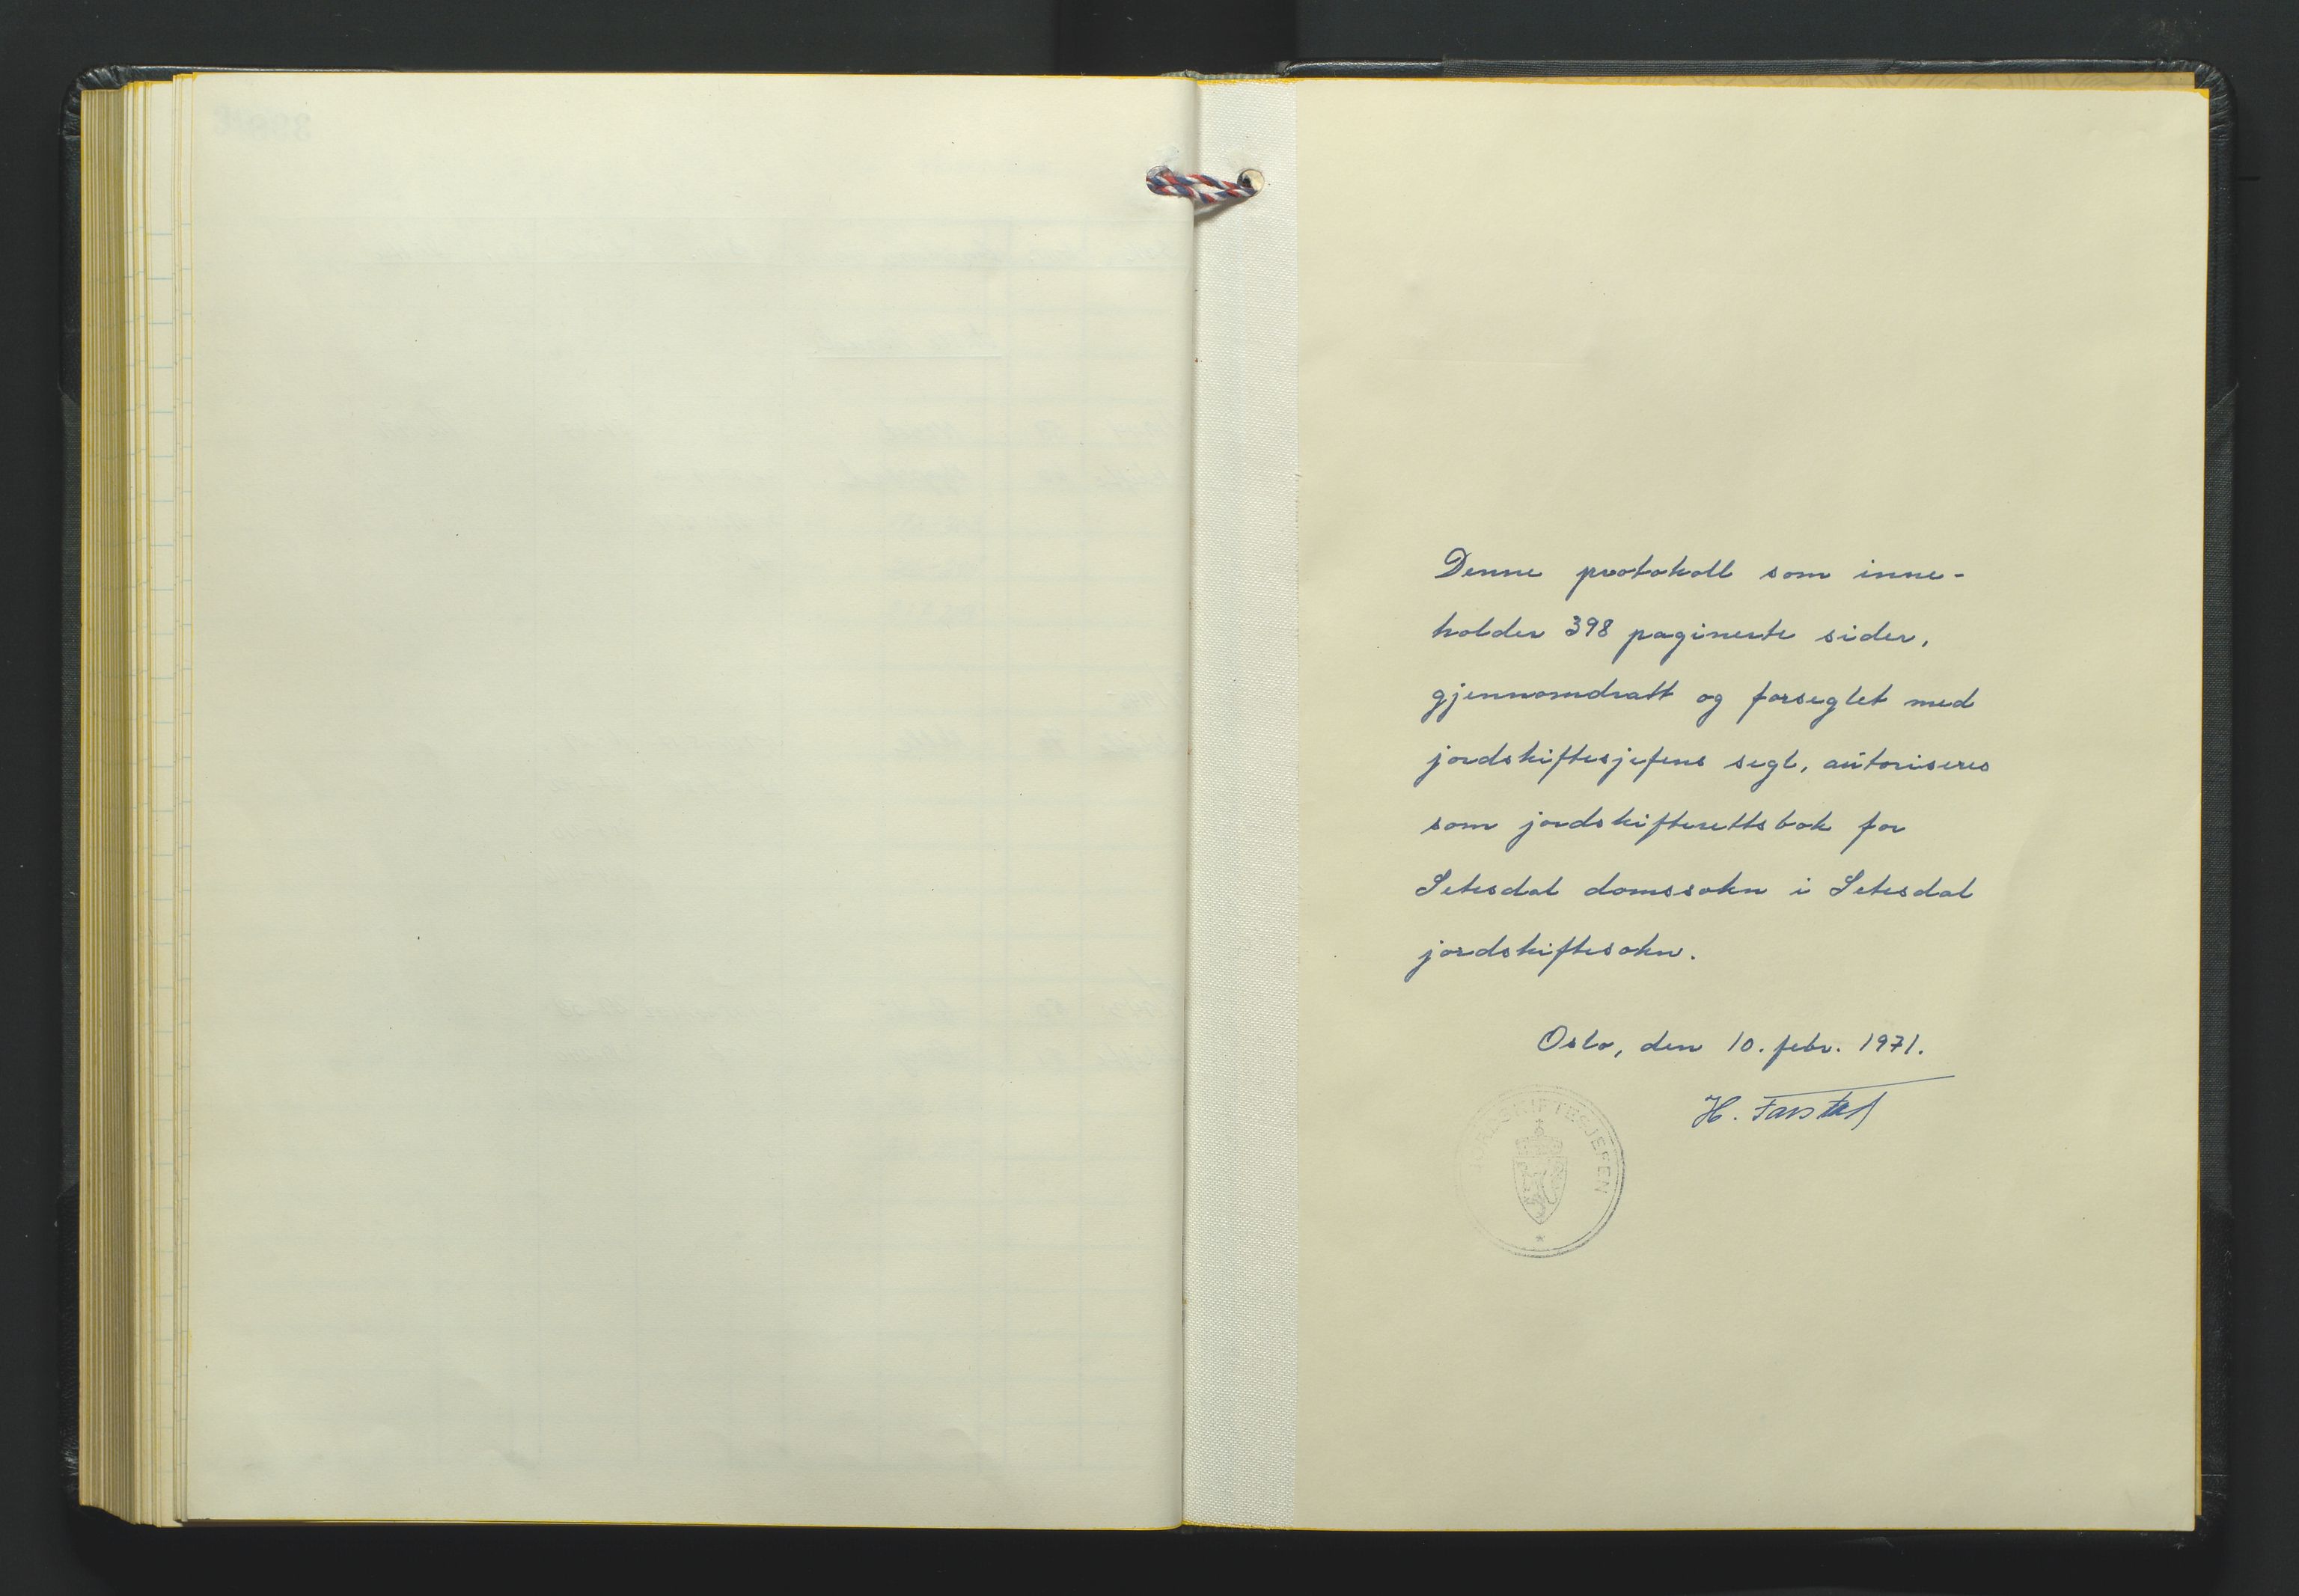 Denne protokoll som inne-
holder 398 paginerte sider,
gjennomdratt og forseglet med
jordskiftesjefens segl, autoriseres
som jordskifterettsbok for
Setesdal domssokn i Setesdal
jordskiftesokn.
Oslo, den 10. febr. 1971.
H. Farstad
JORDSKIFTESJEFEN